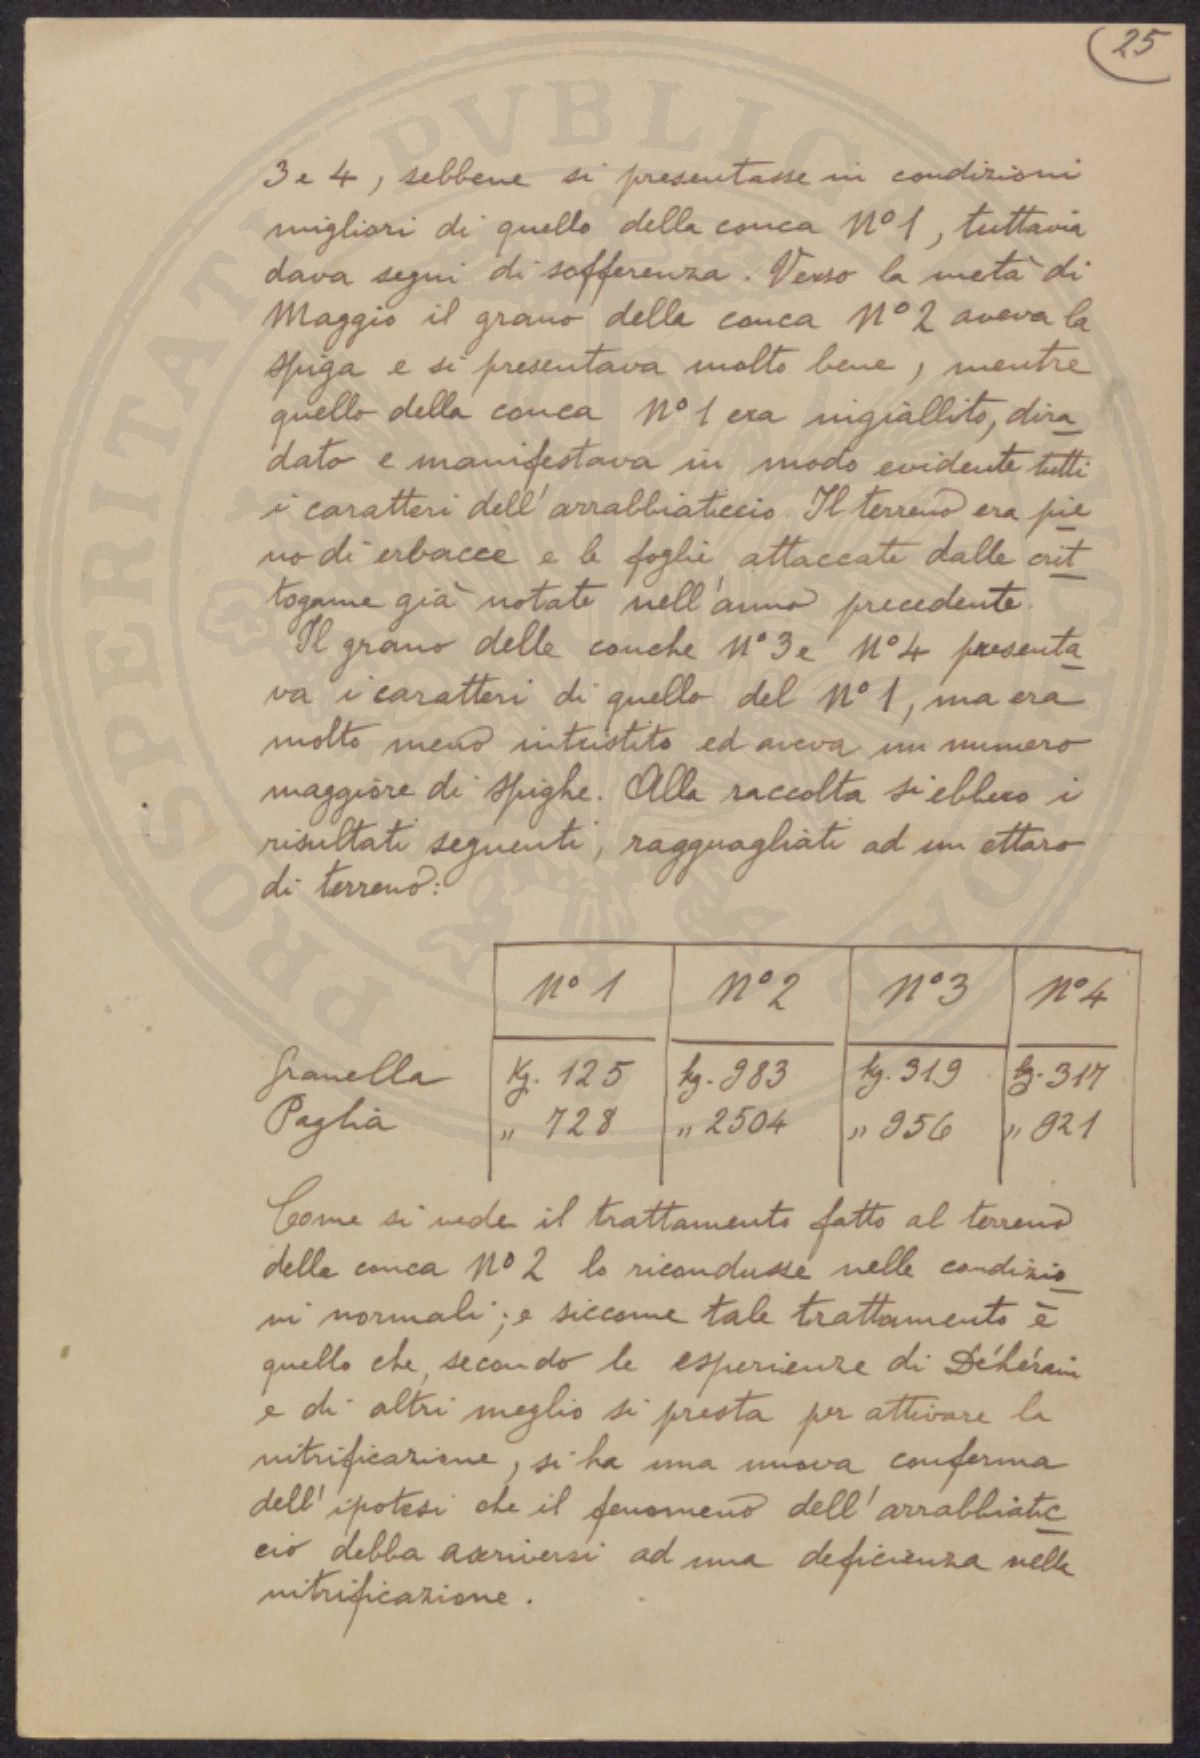 25
3 e 4, sebbene si presentasse in condizioni
migliori di quello della conca N° 1, tuttavia
dava segni di sofferenza. Verso la metà di
Maggio il grano della conca N° 2 aveva la
spiga e si presentava molto bene, mentre
quello della conca N° 1 era ingiallito, dira_
dato e manifestava in modo evidente tutti
i caratteri dell'arrabbiaticcio. Il terreno era pie_
no di erbacce e le foglie attaccate dalle crit_
togame già notate nell'anno precedente.
Il grano delle conche N° 3 e N° 4 presenta_
va i caratteri di quello del N° 1, ma era
molto meno intristito ed aveva un numero
maggiore di spighe. Alla raccolta si ebbero i
risultati seguenti, ragguagliati ad un ettaro
di terreno:
N° 1 N° 2 N° 3 N° 4
Granella Kg. 125 kg. 983 kg. 319 kg. 317
Paglia " 728 " 2504 " 956 " 921
Come si vede il trattamento fatto al terreno
della conca N° 2 lo ricondusse nelle condizio_
ni normali; e siccome tale trattamento è
quello che, secondo le esperienze di Déhérain
e di altri meglio si presta per attivare la
nitrificazione, si ha una nuova conferma
dell'ipotesi che il fenomeno dell'arrabbiatic_
cio debba ascriversi ad una deficienza nella
nitrificazione.
PROSPERITATI PVBLICAE